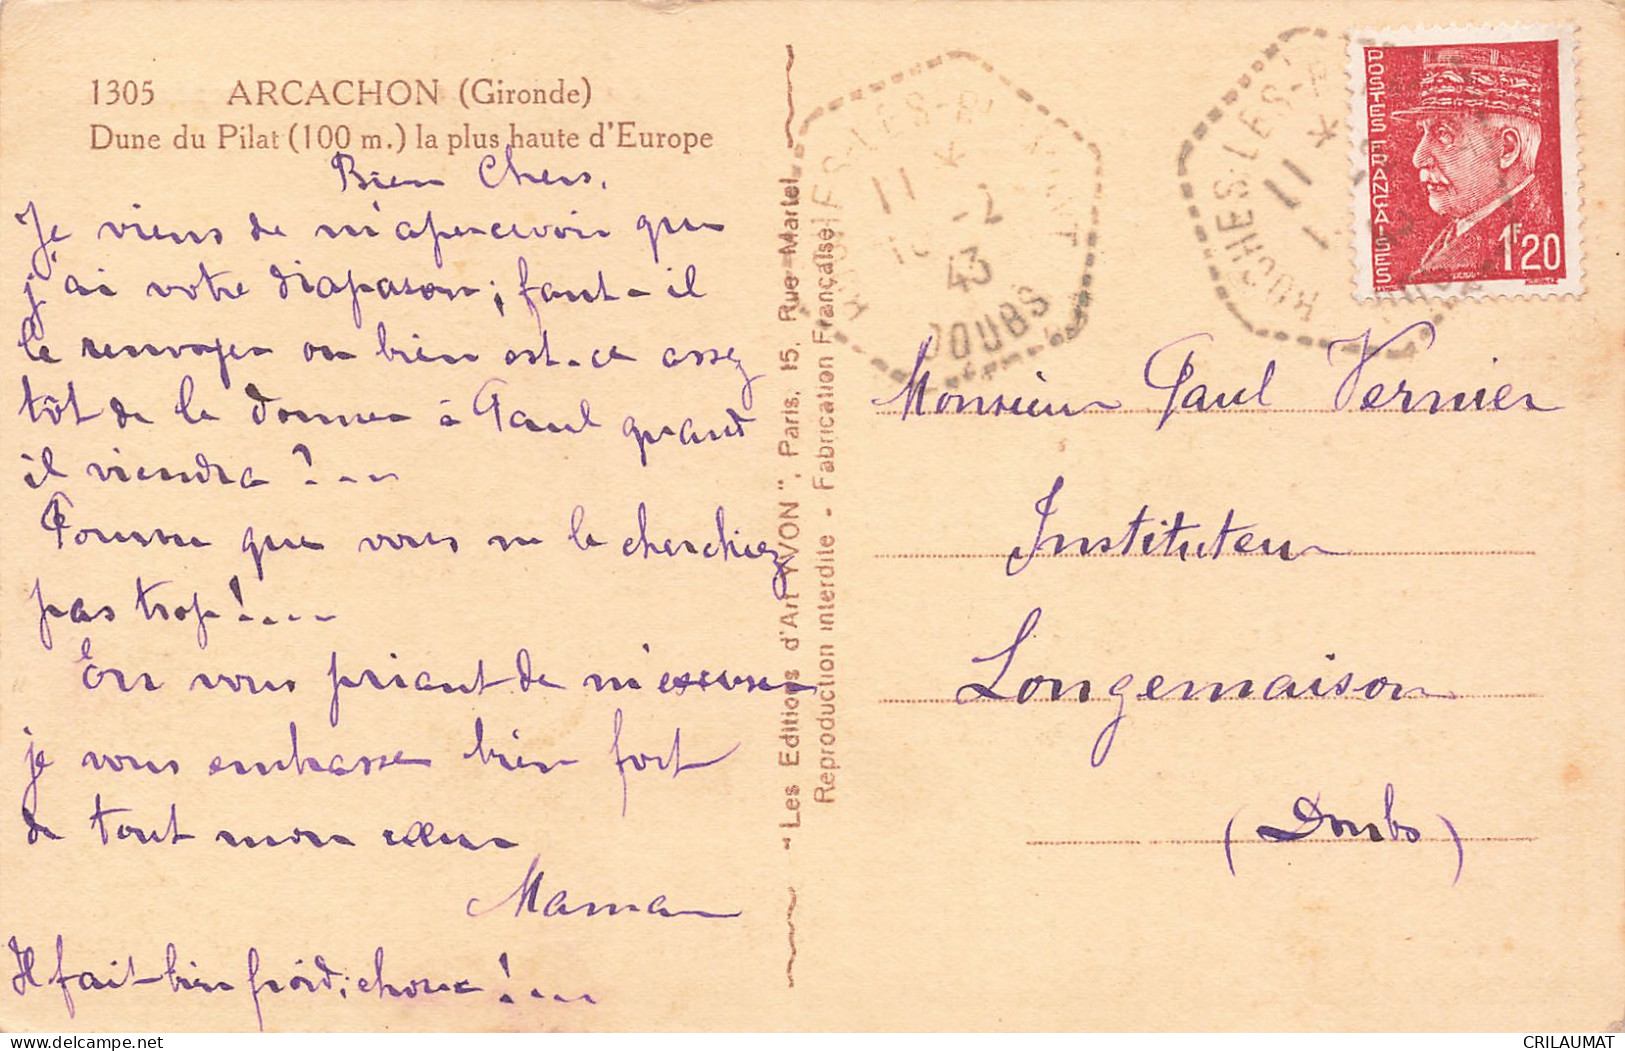 1305 ARCACHON (Gironde)
Dune du Pilat (100 m.) la plus haute d'Europe
Bien Chers,
Je viens de m'apercevoir que
j'ai votre diapason; faut-il
le renvoyer ou bien est-ce assez
tôt de le donner à Paul quand
il viendra?...
Pourvu que vous ne le cherchiez
pas trop!....
En vous priant de m'excuser
je vous embrasse bien fort
de tout mon cœur
Maman
Il fait bien froid;
"Les Editions d'Art YVON", Paris, 15, Rue Martel
Reproduction interdite - Fabrication Française
11 *
-2
43
DOUBS
RUCHES-LES-
11 *
POSTES FRANÇAISES
1F20
Monsieur Paul Vernier
Instituteur
Longemaison
(Doubs)
delcampe.net
CRILAUMAT